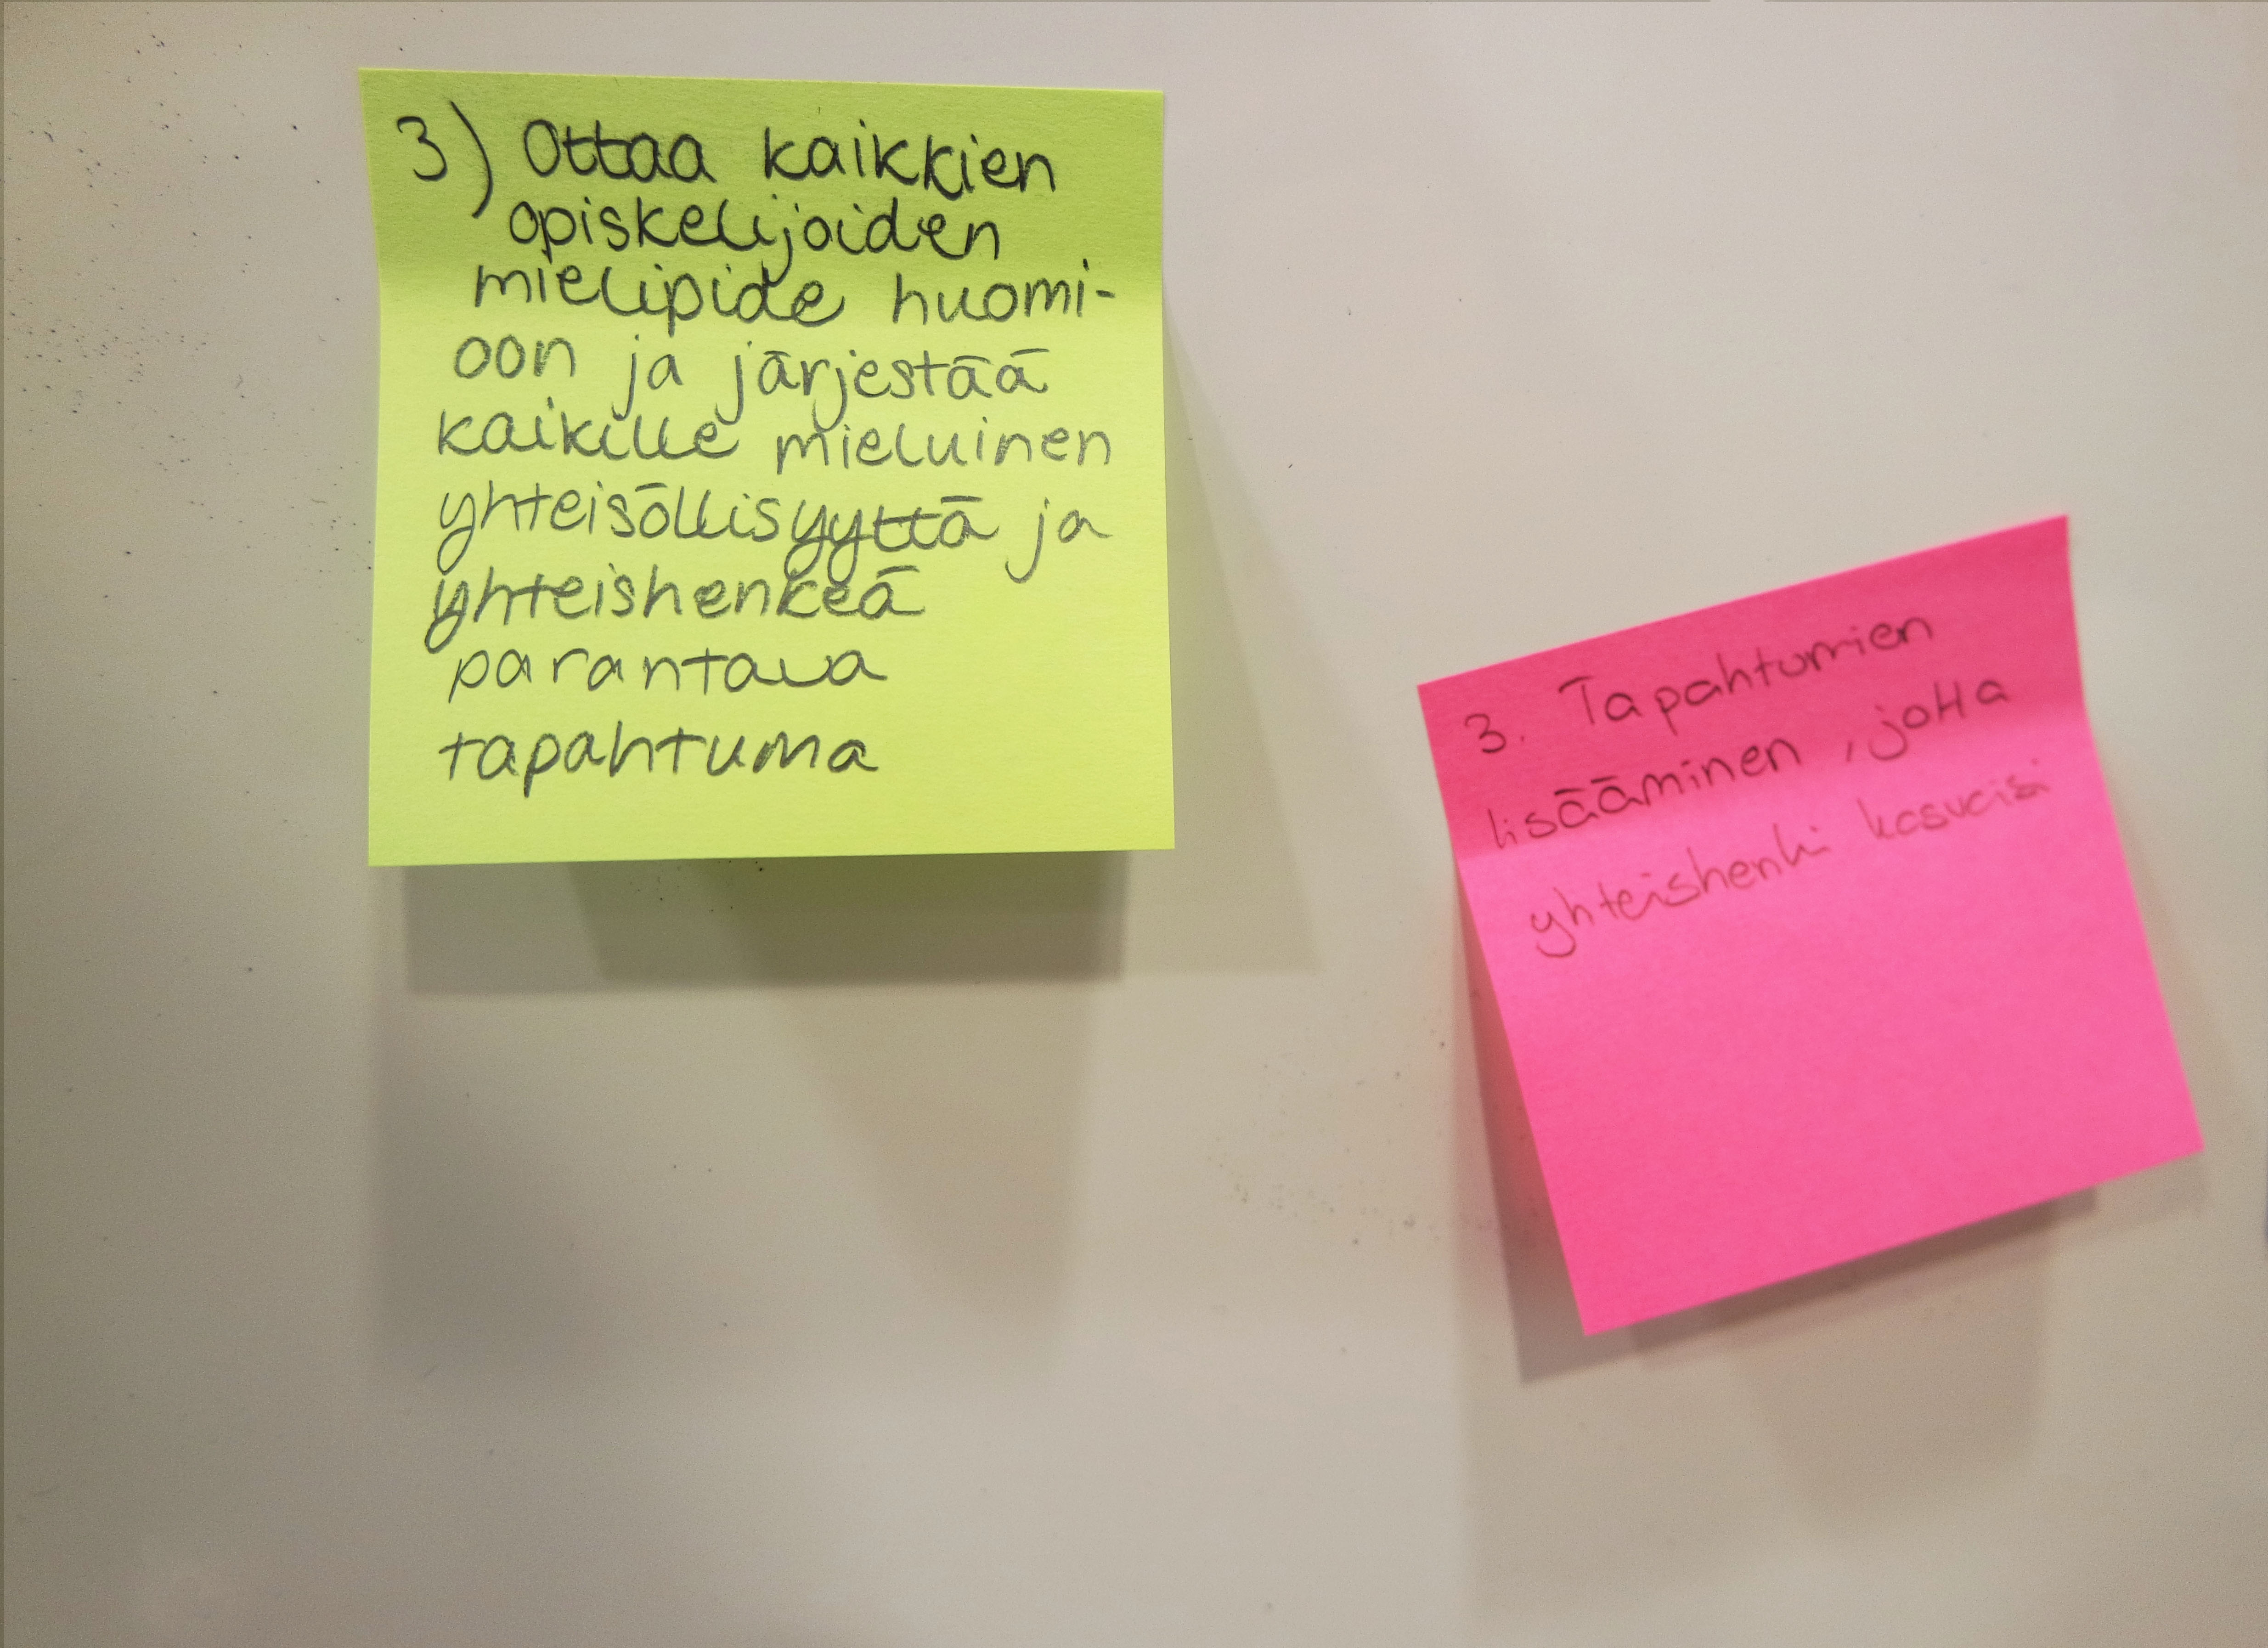 3) Ottaa kaikkien
opiskelijoiden
mielipide huomi-
oon ja järjestää
kaikille mieluinen
yhteisöllisyyttä ja
yhteishenkeä
parantava
tapahtuma
3. Tapahtumien
lisääminen, jotta
yhteishenki kasvaisi